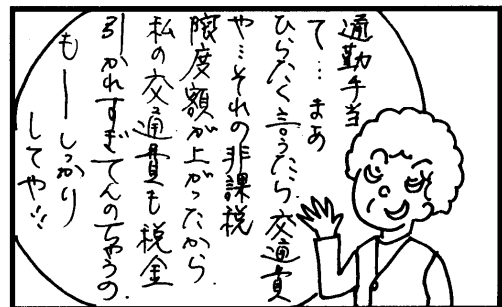 通勤手当
て…まあ
ひらたく言うたら交通費
や…それの非課税
限度額が上がったから.
私の交通費も税金
引かれすぎてんのちゃうの.
も――しっかり
してや!!